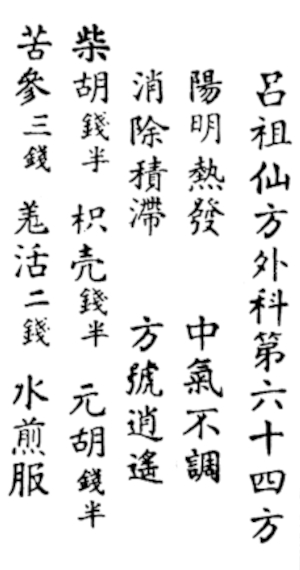 呂祖仙方外科第六十四方
陽明熱發 中氣不調
消除積滯 方號逍遙
柴胡錢半 枳壳錢半 元胡錢半
苦參三錢 羗活二錢 水煎服